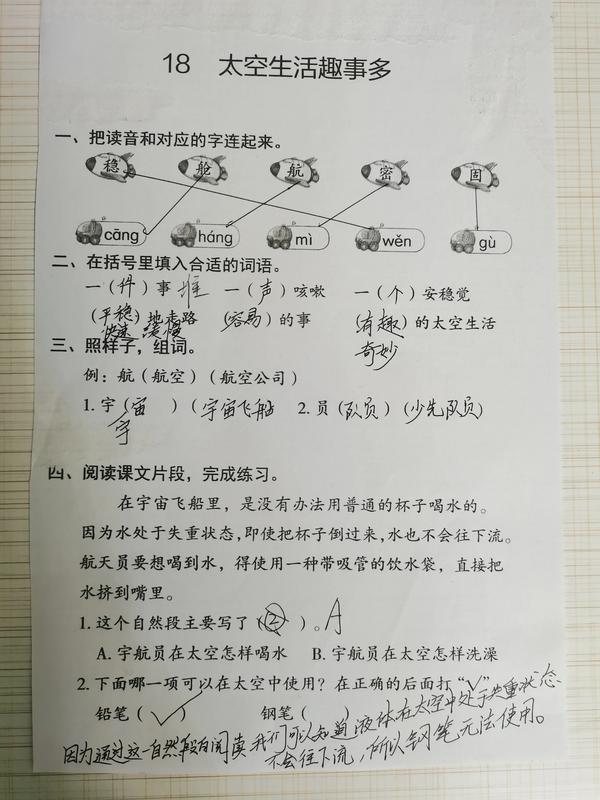 18 太空生活趣事多
一、把读音和对应的字连起来。
稳 舱 航 密 固
cāng háng mì wěn gù
二、在括号里填入合适的词语。
一（件）事 堆 一（声）咳嗽 一（个）安稳觉
（平稳）地走路 （容易）的事 （有趣）的太空生活
快速 缓慢 奇妙
三、照样子，组词。
例：航（航空）（航空公司）
1.宇（宙 ）（宇宙飞船 2.员（队员）（少先队员）
宇
四、阅读课文片段，完成练习。
在宇宙飞船里，是没有办法用普通的杯子喝水的。
因为水处于失重状态，即使把杯子倒过来，水也不会往下流。
航天员要想喝到水，得使用一种带吸管的饮水袋，直接把
水挤到嘴里。
1.这个自然段主要写了（ ）。A
A.宇航员在太空怎样喝水 B.宇航员在太空怎样洗澡
2.下面哪一项可以在太空中使用？在正确的后面打“√”
铅笔（√） 钢笔（ ）
因为通过这一自然段的阅读我们可以知道液体在太空中处于失重状态
不会往下流，所以钢笔无法使用。